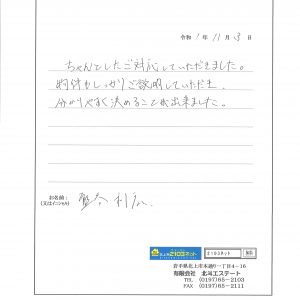 令和 1 年 11 月 13 日
ちゃんとしたご対応していただきました。
物件もしっかりご説明していただき、
分かりやすく決めることが出来ました。
お名前：
(又はイニシャル)
2103ネット
2103ネット 検索
岩手県北上市本通り一丁目4－16
有限会社 北斗エステート
TEL (0197)65-2103
FAX (0197)65-2111